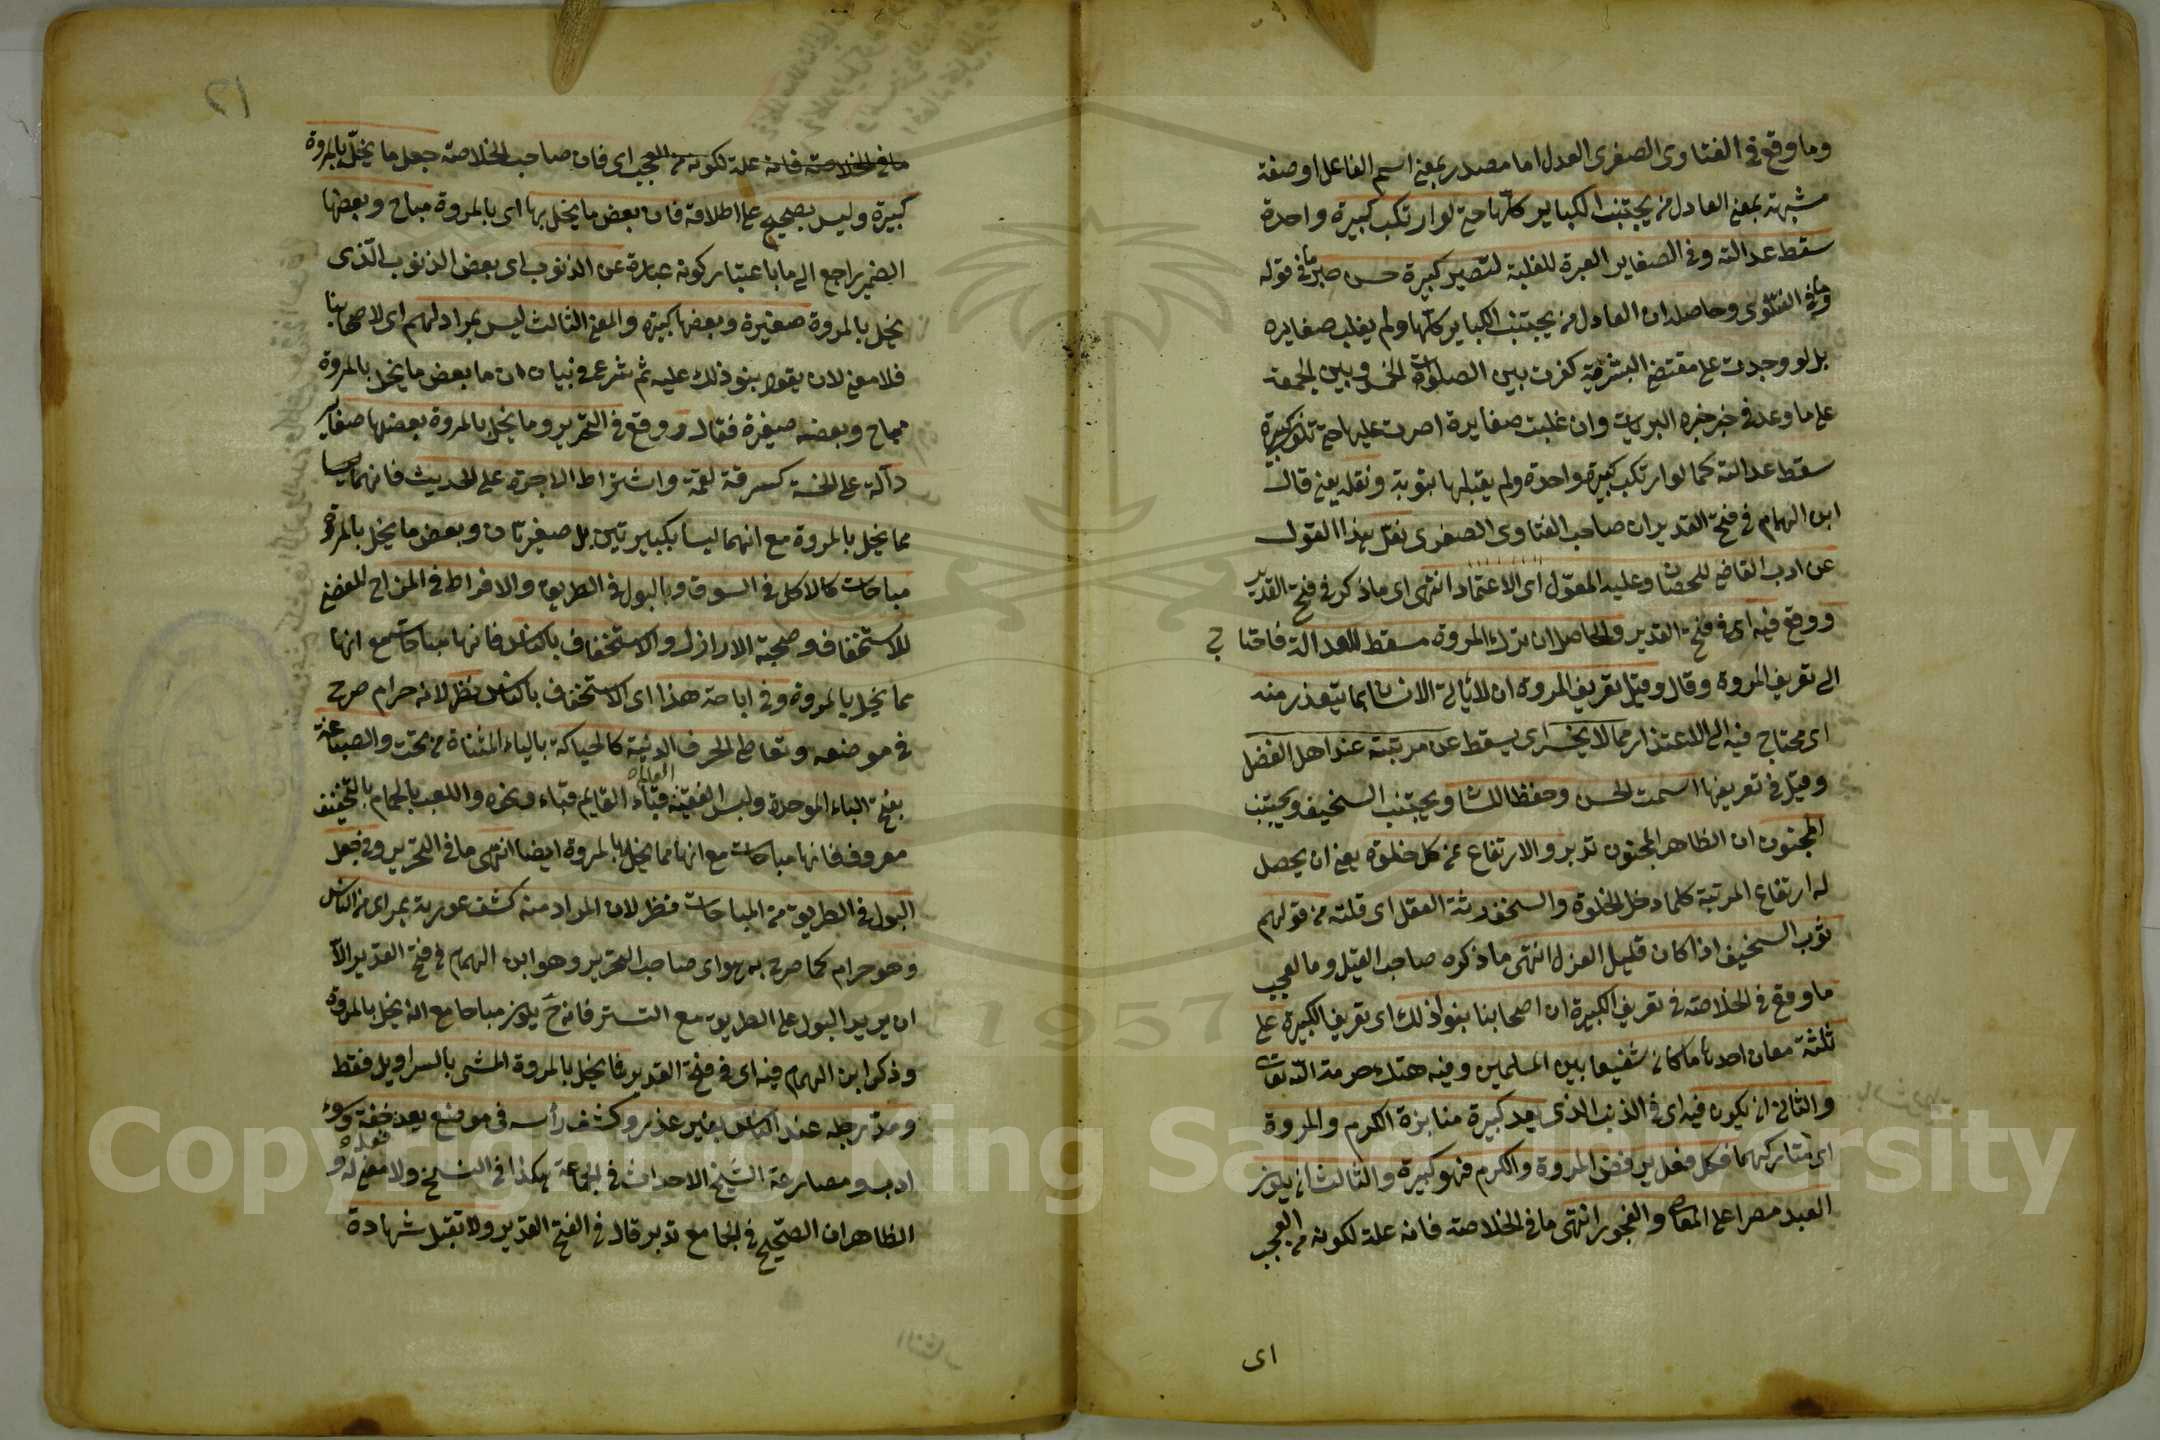 وما وقع في الفتاوى الصغرى العدل اما مصدر بمعنى اسم الفاعل او صفة
مشبهة بمعنى العادل من يجتنب الكباير كلها حتى لو ارتكب كبيرة واحدة
سقط عدالته وفي الصغاير العبرة للغلبة لتصير كبيرة حسن خبر ما في قوله
وما في الفتاوى وحاصله ان العادل من يجتنب الكباير كلها ولم يغلب صغايره
بل لو وجدت على مقتضى البشرية كفرت بين الصلوات الخمس وبين الجمعة
على ما وعد في خبر خير البريات وان غلبت صغايره اصرت عليها حتى تكون كبيرة
سقط عدالته كما لو ارتكب كبيرة واحدة ولم يقبلها بتوبة ونقله يعني قال
ابن الهمام في فتح القدير ان صاحب الفتاوى الصغرى نقل هذا القول
عن ادب القاضي للخصاف وعليه المعول اى الاعتماد انتهى اى ما ذكر في فتح القدير
ووقع فيه اى في فتح القدير والحاصل ان ترك المروة مسقط للعدالة فاحتاج
الى تعريف المروة وقال وقيل تعريف المروة ان لا يأتي الانسان بما يتعذر منه
اى محتاج فيه الى الاعتذار مما لا يخسر اى يسقط عن مرتبته عند اهل الفضل
وقيل في تعريفها السمت الحسن وحفظ اللسان ويجتنب السخيف ويجتنب
المجنون ان الظاهر المجنون تدبر والارتفاع عن كل خلوة يعني ان يحصل
له ارتفاع المرتبة كلما دخل الخلوة والسخف رقة العقل اى قلته من قولهم
ثوب السخيف اذا كان قليل الغزل انتهى ما ذكره صاحب القيل وما العجب
ما وقع في الخلاصة في تعريف الكبيرة ان اصحابنا بنوا ذلك اى تعريف الكبيرة على
ثلثة معان احدها ما كان شنيعا بين المسلمين وفيه هتك حرمة الله تعالى
والثاني ان يكون فيه اى في الذنب الذى يعد كبيرة منابزة الكرم والمروة
اى متاركهما فكل فعل يرفض المروة والكرم فهو كبيرة والثالث ان يكون
العبد مصرا على المعاصي والفجور انتهى ما في الخلاصة فانه علة لكونه من العجب
اى
٢١
ما في الخلاصة فانه علة لكونه من العجب اى فان صاحب الخلاصة جعل ما يخل بالمروة
كبيرة وليس بصحيح على اطلاقه فان بعض ما يخل بها اى بالمروة مباح وبعضها
الضمير راجع الى ما باعتبار كونه عبارة عن الذنوب اى بعض الذنوب الذى
يخل بالمروة صغيرة وبعضها كبيرة والمعنى الثالث ليس بمراد لهم اى لاصحابنا
فلا معنى لان يقول بنو ذلك عليه ثم شرع في بيان ان ما بعض ما يخل بالمروة
مباح وبعضه صغيرة فقال ووقع في التحرير وما يخل بالمروة بعضها صغاير
دآلة على الخسة كسرقة لقمة واشتراط الاجرة على الحديث فانهما ليسا
مما يخل بالمروة مع انهما ليسا بكبيرتين بل صغيرتان وبعض ما يخل بالمروة
مباحات كالاكل في السوق وبالبول في الطريق والافراط في المزاح المفضى
للاستخفاف وصحبة الاراذل والاستخفاف بالناس فانها مباحات مع انها
مما يخل بالمروة وفي اباحة هذا اى الاستخفاف بالناس نظر لانه حرام صرح
في موضعه وتعاطى الحرف الدنية كالحياكة بالياء المثناة من تحت والصباغة
بفتح الباء الموحدة ولبس الفقيه قباء القايم قباء ونحوه واللعب بالحمام بالتخفيف
معروف فانها مباحات مع انها مما يخل بالمروة ايضا انتهى ما في التحرير وفي جعل
البول في الطريق من المباحات فنظر لان المراد منه كشف عورته بمراى من الناس
وهو حرام كما صرح به هو اى صاحب التحرير وهو ابن الهمام في فتح القدير الا
ان يريد البول على الطريق مع التستر فانه ح يكون مباحا مع انه يخل بالمروة
وذكر ابن الهمام فيه اى في فتح القدير فما يخل بالمروة المشى بالسراويل فقط
ومد رجله عند الناس بغير عذر وكشف رأسه في موضع يعد خفة وسوء
ادب ومصارعة الشيخ الاحداث في الجماعة هكذا في النسخ ولا معنى له و
الظاهر ان الصحيح في الجامع تدبر قال في الفتح القدير ولا تقبل شهادة
Copyright © King Saud University
1957